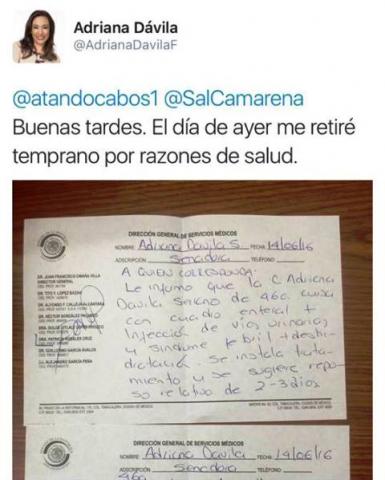 Adriana Dávila
@AdrianaDavilaF
@atandocabos1 @SalCamarena
Buenas tardes. El día de ayer me retiré
temprano por razones de salud.
DIRECCIÓN GENERAL DE SERVICIOS MÉDICOS
NOMBRE Adriana Davila S. FECHA 14/06/16
ADSCRIPCIÓN Senadora TELÉFONO
DR. JUAN FRANCISCO OMAÑA VILLA
DIRECTOR GENERAL
A QUIEN CORRESPONDA:
Le informo que la C. Adriana
Davila de 46a. cursa
con cuadro enteral +
Injección de vias urinarias
y sindrome febril + deshi-
dratación. Se instala trata-
miento y se sugiere repo-
so relativo de 2-3 días
DIRECCIÓN GENERAL DE SERVICIOS MÉDICOS
NOMBRE Adriana Davila S FECHA 14/06/16
ADSCRIPCIÓN Senadora TELÉFONO
46a